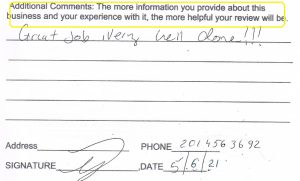 Additional Comments: The more information you provide about this
business and your experience with it, the more helpful your review will be.
Great job, Very well done!!!
Address
PHONE 201 456 36 92
SIGNATURE
DATE 5/6/21